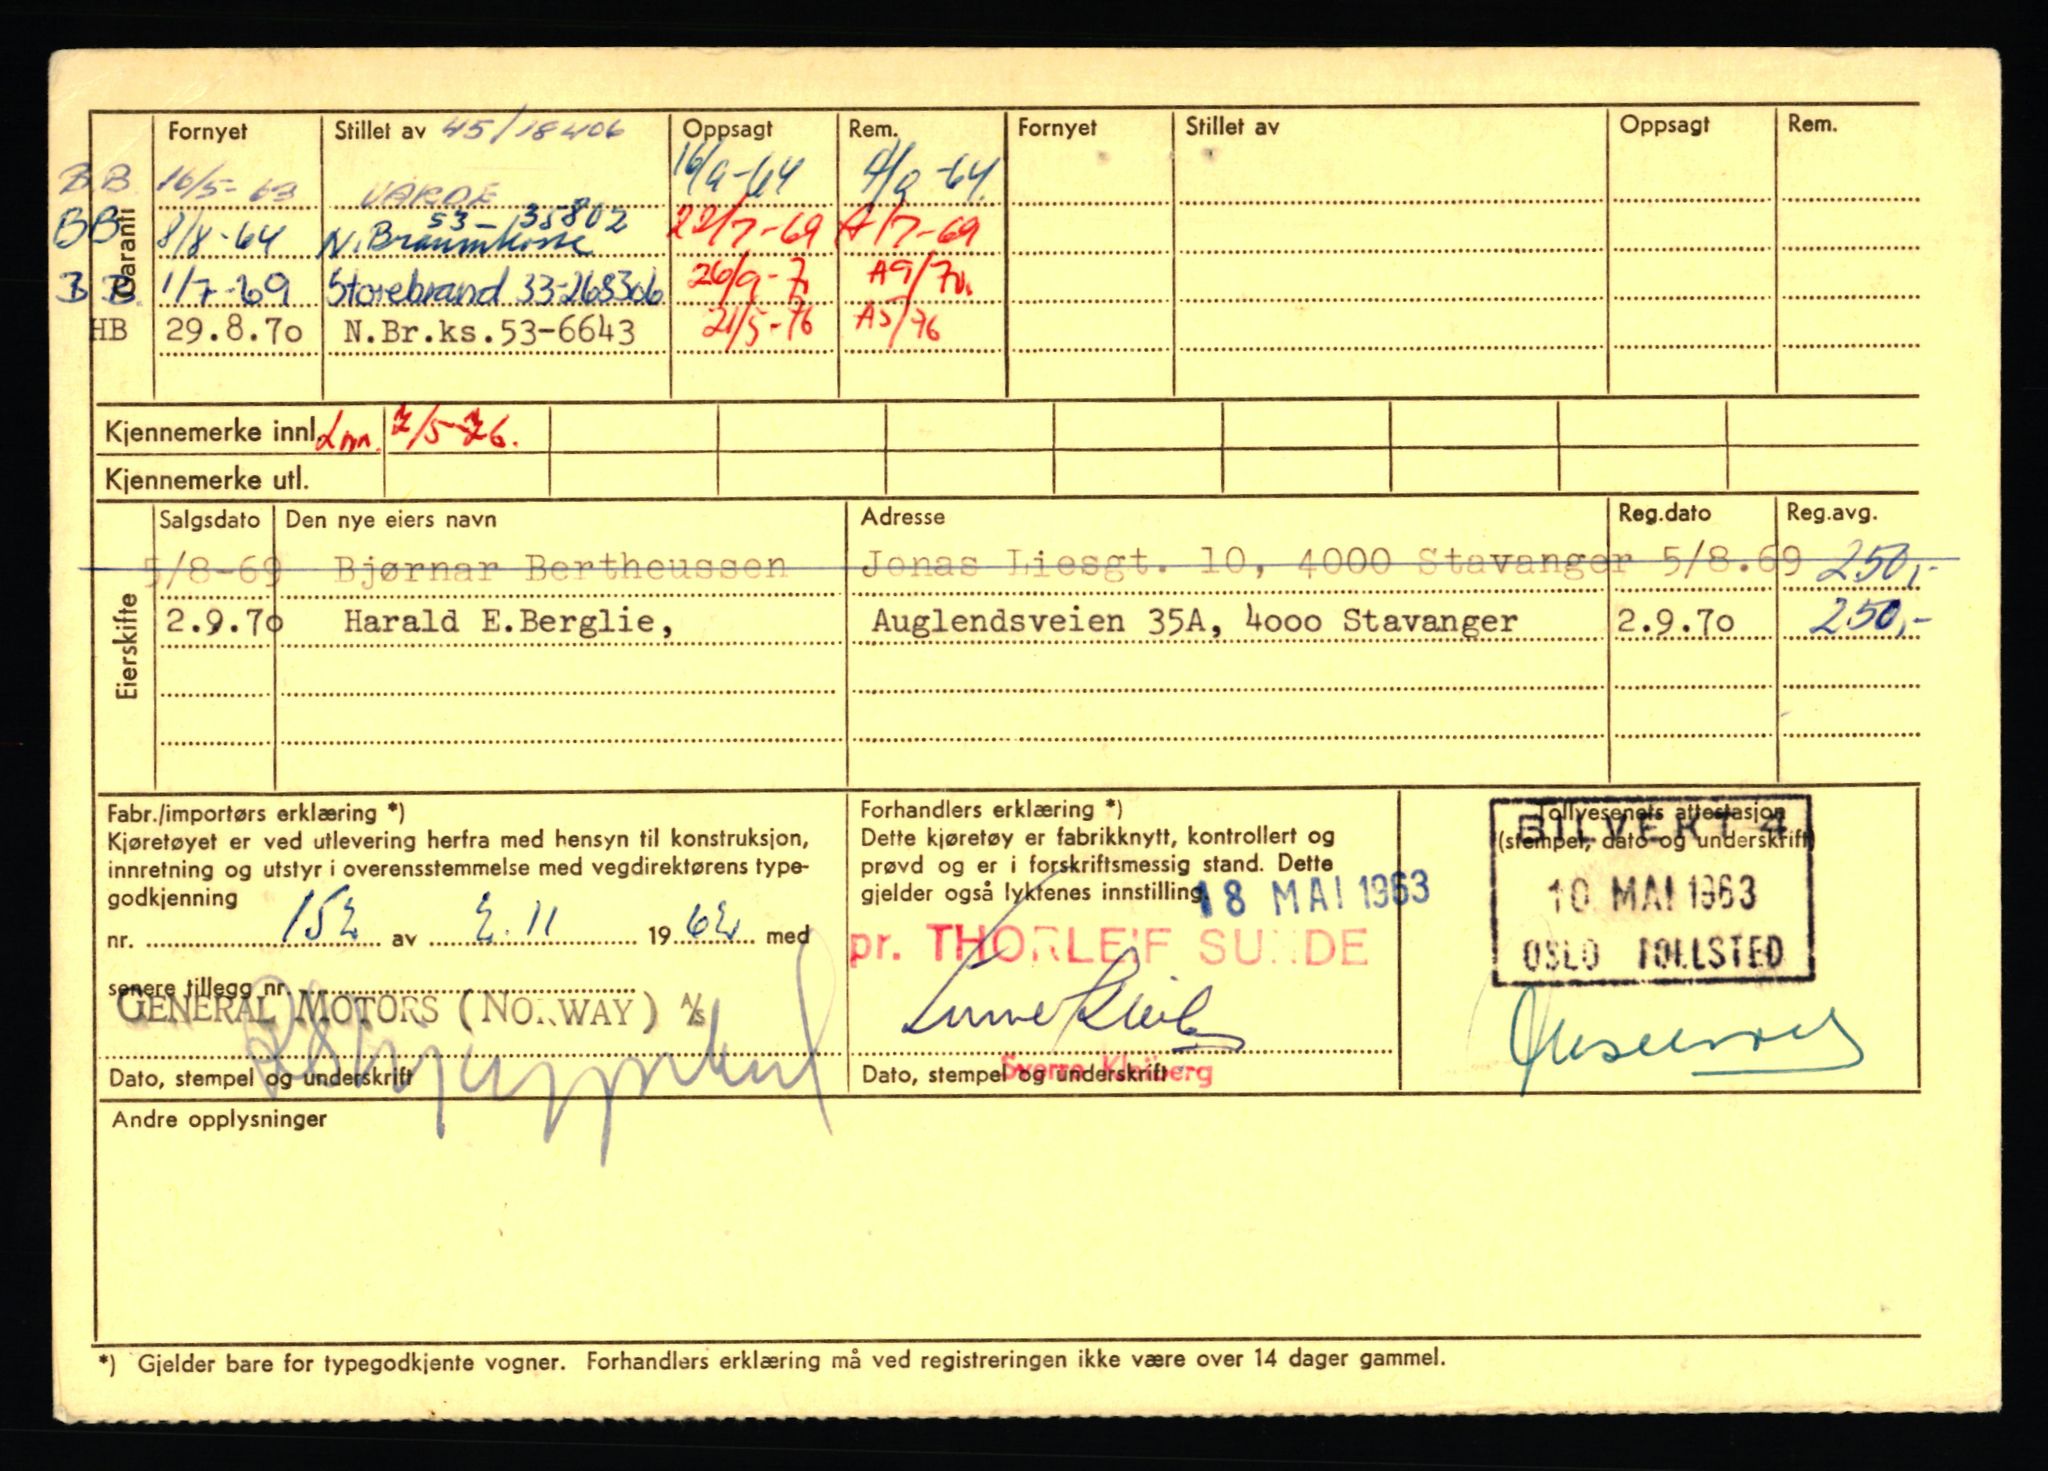 Fornyet Stillet av 45/18406 Oppsagt Rem. Fornyet Stillet av Oppsagt Rem.
Garanti
BB 16/5-63 VARDE 16/9-64 A/9-64.
BB 8/8-64 N. Brannkasse 53-35802 22/7-69 A/7-69
BB. 1/7-69 Storebrand 33-268306 26/9-7 A9/70.
HB 29.8.7o N.Br.ks.53-6643 21/5-76 A5/76
Kjennemerke innl. Inn. 2/5-76.
Kjennemerke utl.
Eierskifte
Salgsdato Den nye eiers navn Adresse Reg.dato Reg.avg.
5/8-69 Bjørnar Bertheussen Jonas Liesgt. 10, 4000 Stavanger 5/8.69 250,-
2.9.7o Harald E.Berglie, Auglendsveien 35A, 4ooo Stavanger 2.9.7o 250,-
Fabr./importørs erklæring *)
Kjøretøyet er ved utlevering herfra med hensyn til konstruksjon,
innretning og utstyr i overensstemmelse med vegdirektørens type-
godkjenning
nr. 152 av 2.11 1962 med
senere tillegg nr.
GENERAL MOTORS (NORWAY) A/S
Dato, stempel og underskrift
Forhandlers erklæring *)
Dette kjøretøy er fabrikknytt, kontrollert og
prøvd og er i forskriftsmessig stand. Dette
gjelder også lyktenes innstilling
18 MAI 1963
pr. THORLEIF SUNDE
Sverre Kleiberg
Dato, stempel og underskrift
Tollvesenets attestasjon
(stempel, dato og underskrift)
BILVERK 4
10 MAI 1963
OSLO TOLLSTED
Andre opplysninger
*) Gjelder bare for typegodkjente vogner. Forhandlers erklæring må ved registreringen ikke være over 14 dager gammel.